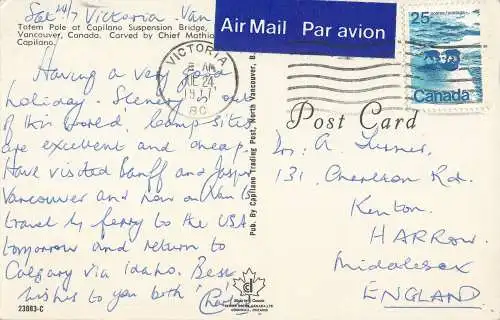 Sat 24/7 Victoria Van
Totem Pole at Capilano Suspension Bridge,
Vancouver, Canada. Carved by Chief Mathias
Capilano.
Having a very good
holiday. Scenery out
of this world, camp sites
are excellent and cheap.
Have visited Banff and Jasper
Vancouver and now on Van Is
travel by ferry to the USA
tomorrow and return to
Calgary via Idaho. Best
wishes to you both
23883-C
Pub. By Capilano Trading Post, North Vancouver, B.
Air Mail Par avion
VICTORIA
24
BC
25
postes postage
Canada
Post Card
A Turner,
131, Rd.
Kenton
HARROW
Middlesex
ENGLAND